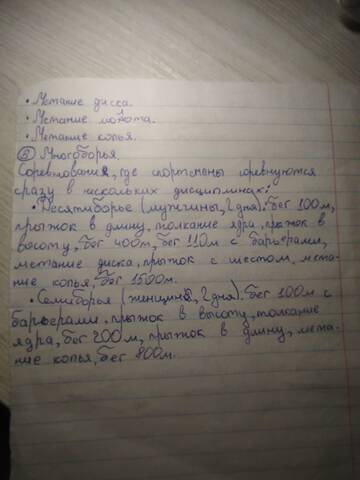 • Метание дисса.
• Метание молота.
• Метание копья.
⑤ Многоборья.
Соревнования, где спортсмены соревнуются
сразу в нескольких дисциплинах:
• Десятиборье (мужчины, 2 дня): бег 100м,
прыжок в длину, толкание ядра, прыжок в
высоту, бег 400м, бег 110м с барьерами,
метание диска, прыжок с шестом, мета-
ние копья, бег 1500м.
• Семиборья (женщины, 2 дня): бег 100м с
барьерами, прыжок в высоту, толкание
ядра, бег 200м, прыжок в длину, мета-
ние копья, бег 800м.